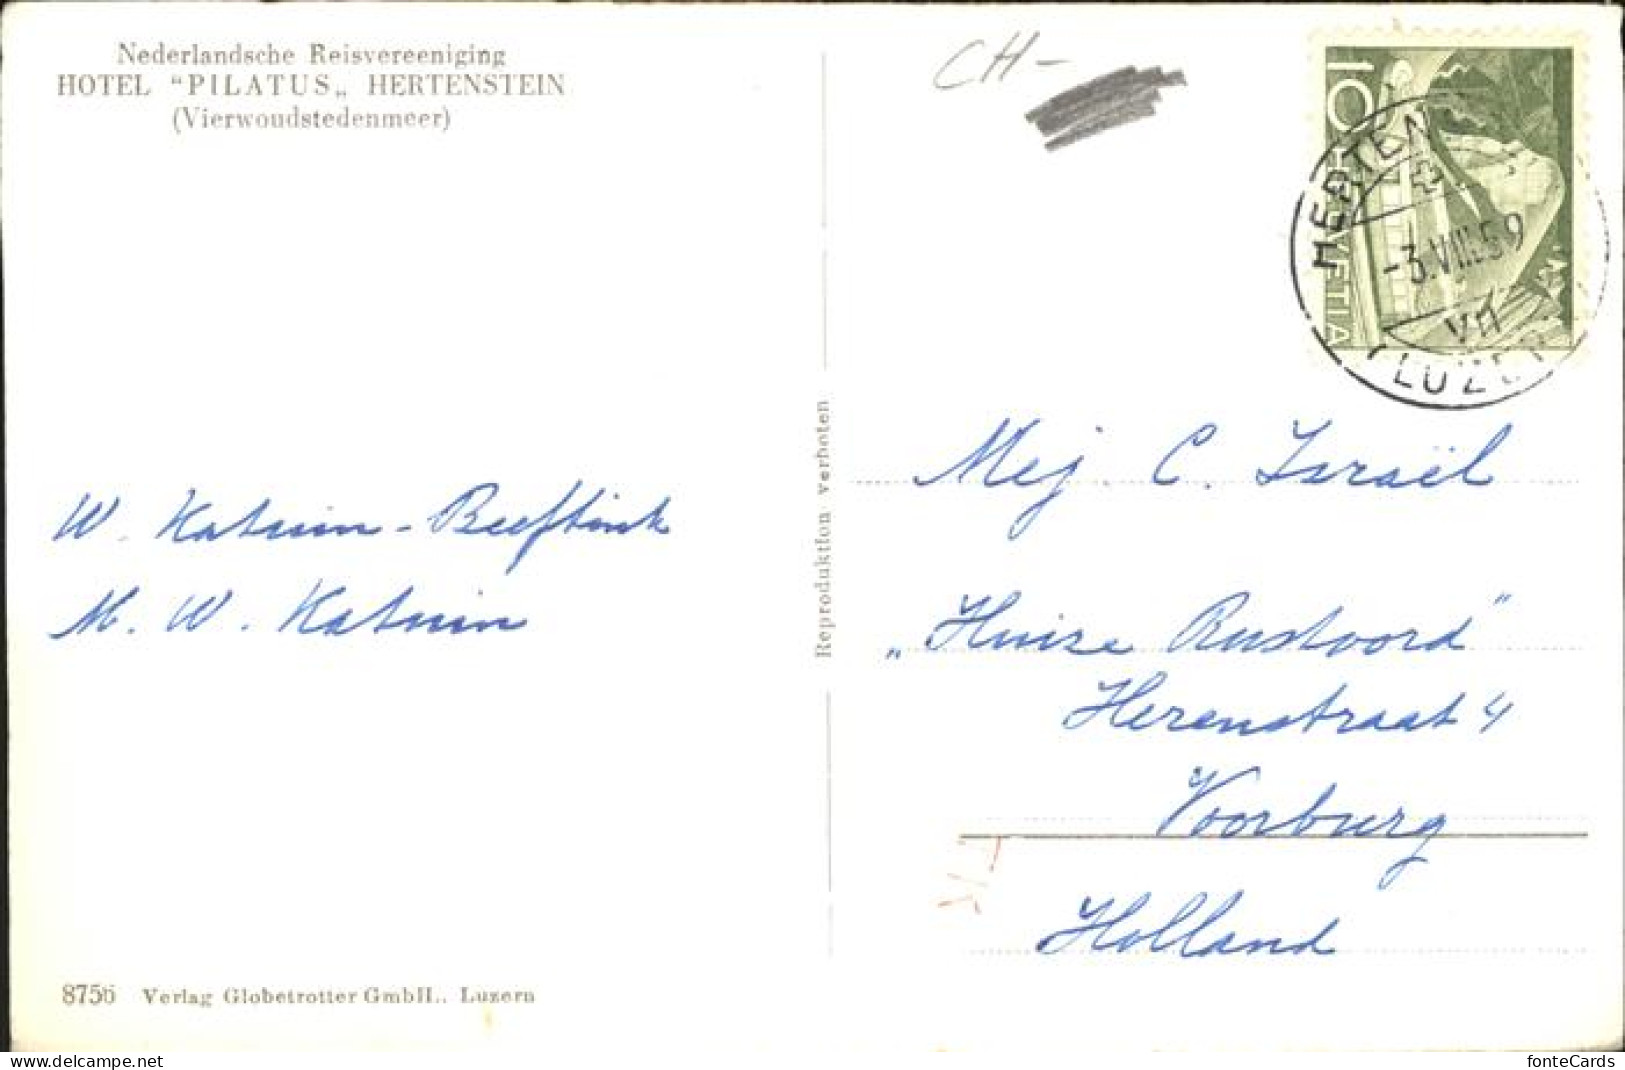 Nederlandsche Reisvereeniging
HOTEL “PILATUS„ HERTENSTEIN
(Vierwoudstedenmeer)
CH-
10
HELVETIA
HERTEN
-3.VIII.59
VII
LUZER
W. Katuin - Beeftink
M. W. Katuin
Reproduktion verboten
Mej. C. Israël
„Huize Rustoord”
Herenstraat 4
Voorburg
Holland
8756 Verlag Globetrotter GmbH., Luzern
www.delcampe.net
fonteCards